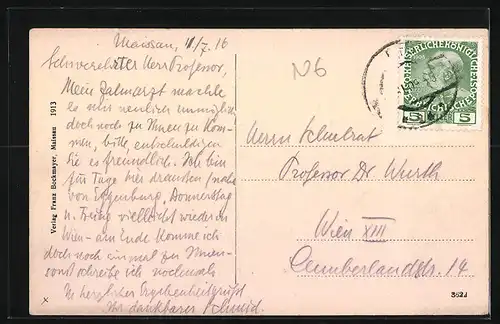 Maissau, 11/7. 16
Sehrverehrter Herr Professor,
Mein Zahnarzt machte
es mir neulich unmöglich
doch noch zu Ihnen zu kom-
men, bitte, entschuldigen
Sie es freundlich. Ich bin
für Tage hier draussen (nahe
von Eggenburg, Donnerstag
u. Freitag vielleicht wieder in
Wien - am Ende komme ich
doch noch einmal zu Ihnen -
sonst schreibe ich nochmals
In herzlicher Ergebenheit grüßt
Ihr dankbarer Schmid.
N6
Verlag Franz Bockmayer, Maissau 1913
5 5
Herrn Schulrat
Professor Dr Wurth
Wien XIII
Cumberlandstr. 14.
x